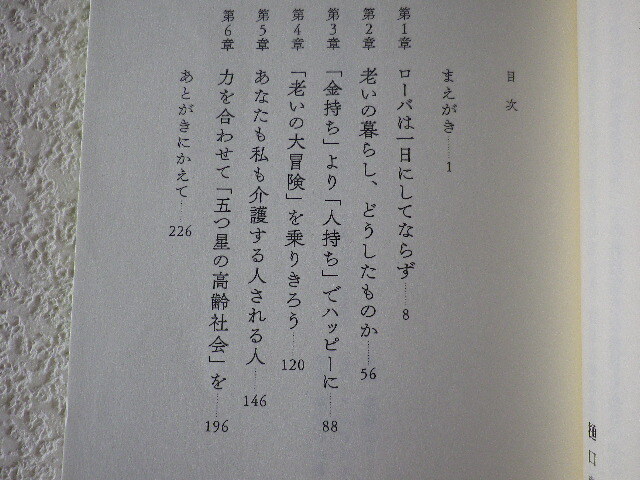 目次
まえがき……1
第1章 ローバは一日にしてならず……8
第2章 老いの暮らし、どうしたものか……56
第3章 「金持ち」より「人持ち」でハッピーに……88
第4章 「老いの大冒険」を乗りきろう……120
第5章 あなたも私も介護する人される人……146
第6章 力を合わせて「五つ星の高齢社会」を……196
あとがきにかえて…226
樋口